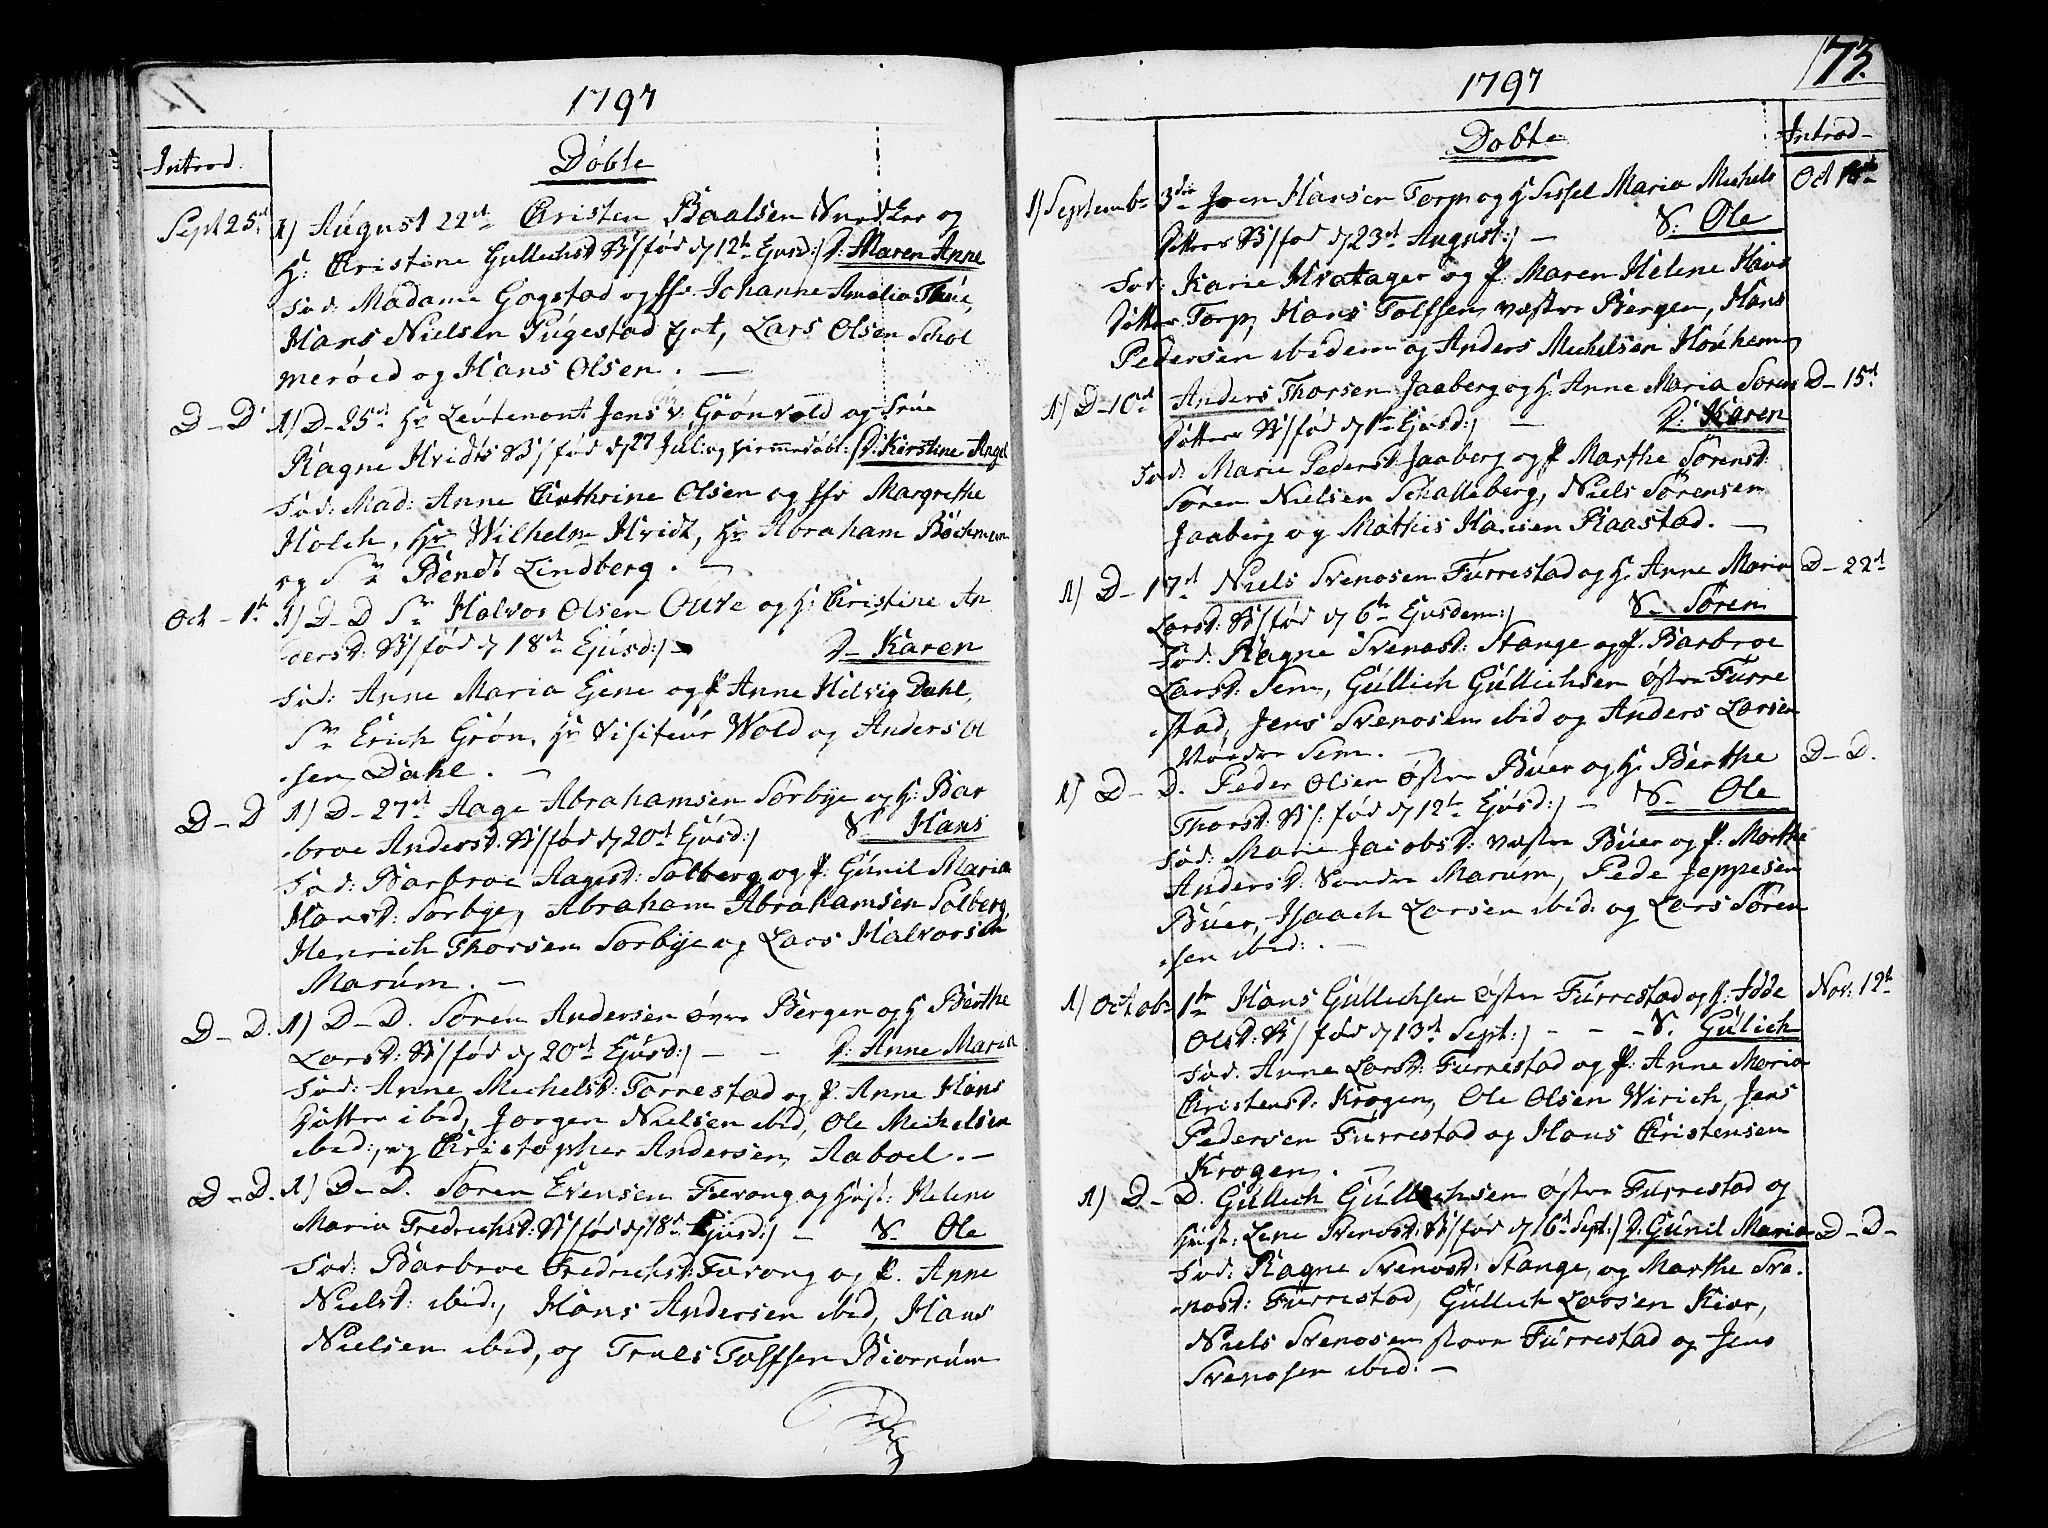 1797
Introd.
Döbte
Sept 25d 1) August 22d Christen Baalsen Snedker og
H: Christine Gullichsd B/ fød d 12te Ejusd:/ D: Maren Anne
Fad: Madame Gogstad og Jfr Johanne Amalia Thüe,
Hans Nielsen Pugestad Gnt, Lars Olsen Schol
meröed og Hans Olsen. —
D–D 1) D–25d Hr Leutenant Jens v. Grönvold og Frue
Ragne Hvidts B/ fød d 27 Juli og hjemmedöbt:/ D: Kirstine Angel
Fad: Mad: Anne Cathrine Olsen og Jfr Margrethe
Holch, Hr Wilhelm Hvidt, Hr Abraham Böckmann
og Sr Bendt Lindberg. —
Oct – 1te 1) D–D Sr Halvor Olsen Ouve og H: Christine An
dersd: B/ fød d 18d Ejusd:/ D– Karen
Fad: Anne Maria Ejene og P Anne Helvig Dahl,
Sr Erich Grön, Hr Visiteur Wold og Anders Ol
sen Dahl. —
D–D 1) D–27d Aage Abrahamsen Sörbye og H: Bar
broe Andersd. B/ fød d 20d Ejusd:/ S. Hans
Fad: Barbroe Aagesd: Solberg og P: Gunil Maria
Hansd: Sorbye, Abraham Abrahamsen Solberg,
Henrich Thorsen Sorbye og Lars Halvorsen
Marüm. —
D–D. 1) D–D. Sören Andersen övre Bergen og H Berthe
Larsd: B/ fød d 20d Ejusd:/ – – D: Anne Maria
Fad: Anne Michelsd: Torrestad og P. Anne Hans
Datter ibid, Jörgen Nielsen ibid, Ole Michelsen
ibid:, og Christopher Andersen Aaboel. —
D–D. 1) D–D. Sören Evensen Furong og Hust: Helene
Maria Fredrichsd: B/ fød d 18d Ejusd:/ – S– Ole
Fad: Barbroe Fredrichsd: Furong og P. Anne
Nielsd: ibid:, Hans Andersen ibid, Hans
Nielsen ibid, og Truls Tolfsen Biörnüm
1797
73.
Döbte
Introd–
1) Septembr 3die Joen Hansen Torp og H Sissel Maria Michels Oct
Datter B/ fød d 23d August:/ — S: Ole
Fad: Karie Hvatager og P. Maren Helene Hans
Datter Torp, Hans Tolfsen vestre Bergen, Hans
Pedersen ibidem og Anders Michelsen Hoxhem
1) D–10d Anders Thorsen Jaaberg og H: Anne Maria Sörens D–15d
Datter B/ fød d 1te Ejusd:/ – D: Karen
Fad: Marie Pedersd: Jaaberg og P Marthe Sörensd:
Sören Nielsen Schalleberg, Niels Sörensen
Jaaberg og Mathis Hansen Raastad. —
1) D–17d Niels Svenosen Furrestad og H. Anne Maria D–22d
Larsd: B/ fød d 6te Ejusdem:/ S– Sören
Fad: Ragne Svenosd: Stange og P. Barbroe
Larsd: Sem, Güllich Güllichsen östre Furre
stad, Jens Svenosen ibid og Anders Larsen
Nordre Sem. —
1) D–D. Peder Olsen östre Büer og H. Berthe D–D.
Thorsd: B/: fød d 12te Ejusd:/ – S– Ole
Fad: Marie Jacobsd: vestre Büer og P: Marthe
Andersd: Söndre Marüm, Pede Jeppesen
Büer, Isaach Larsen ibid: og Lars Sören
sen ibid:. —
1) Octobr 1te Hans Güllichsen östre Fürrestad og H: Idde Nov: 12te
Olsd: B/ fød d 13d Sept:/ – – – S. Gülich
Fad: Anne Larsd: Furrestad og P: Anne Maria
Christensd: Krogen, Ole Olsen Wirich, Jens
Pedersen Furrestad og Hans Christensen
Krogen. —
1) D–D. Güllich Güllichsen östre Furrestad og
Hust: Lene Svenosd: B/ fød d 16d Sept:/ D: Gunil Maria D–D–
Fad: Ragne Svenosd: Stange, og Marthe Sve
nosd: Fürrestad, Güllich Larsen Kiær,
Niels Svenosen store Fürrestad og Jens
Svenosen ibid: —